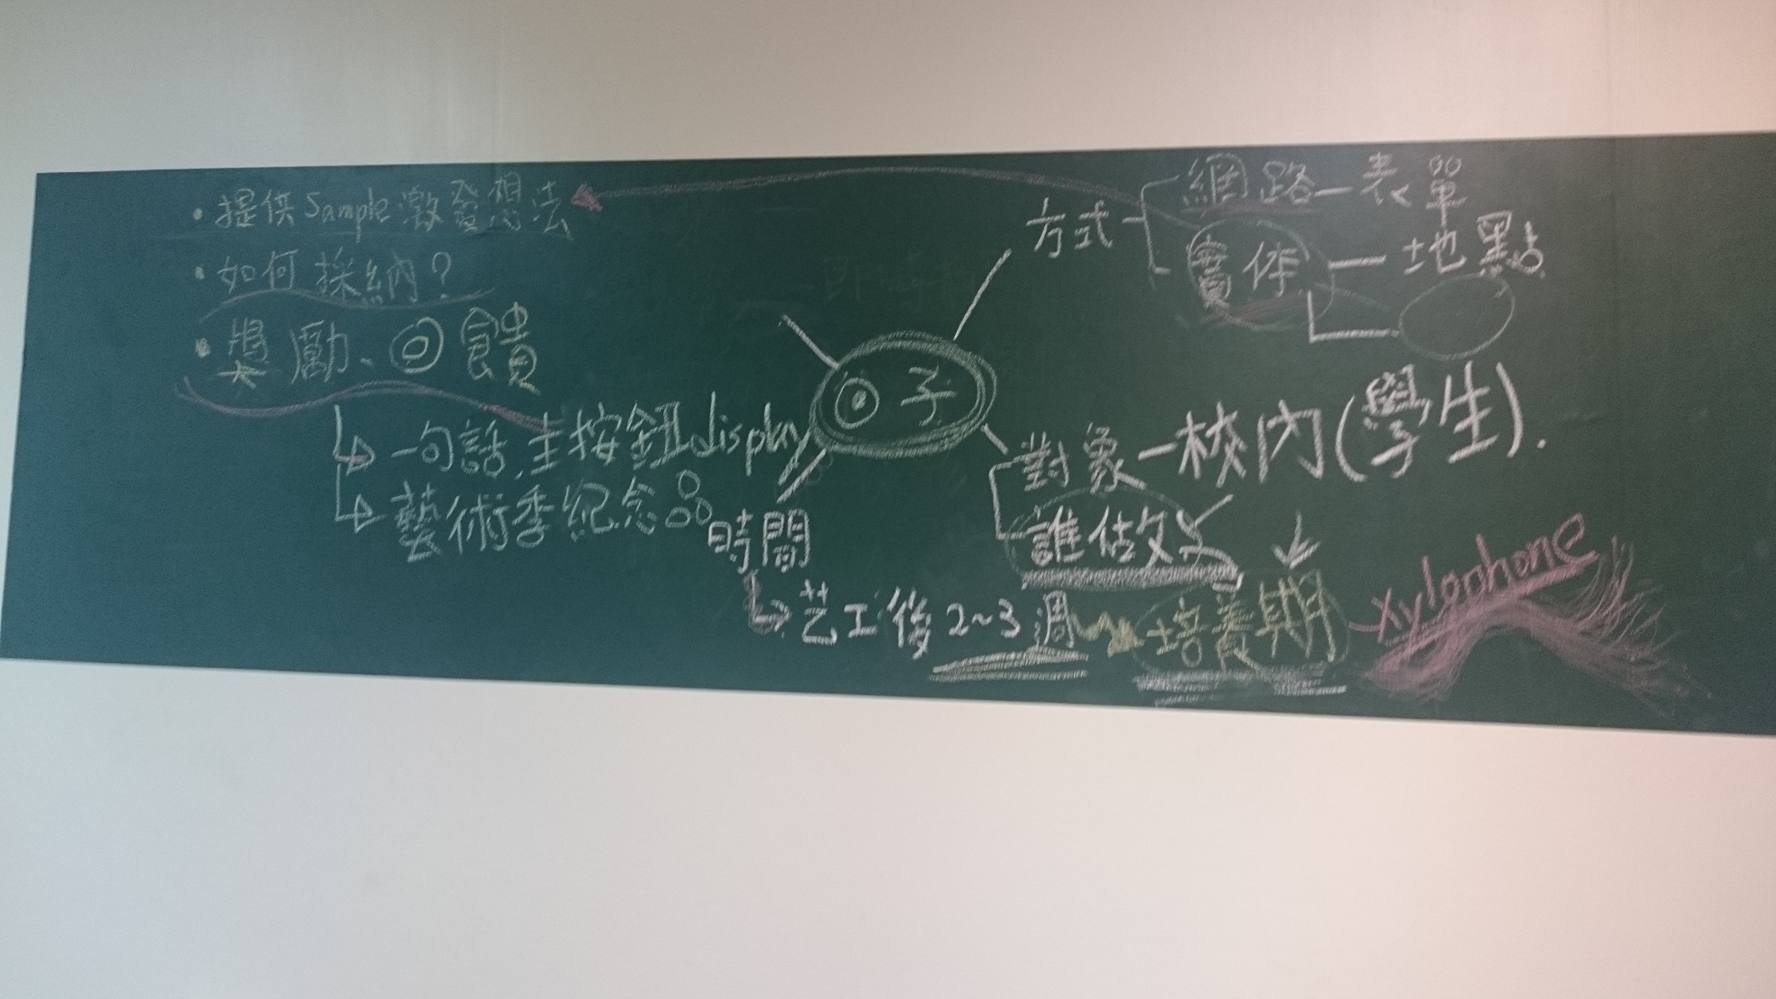 ・提供Sample激發想法
・如何採納?
・獎勵、回饋
一句話,主按鈕display
藝術季紀念品
回子
方式
網路-表單
實体-地點
對象-校內(學生).
誰估
時間
艺工後2~3週
培養期
Xylophone